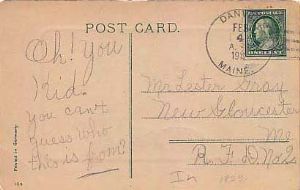 POST CARD.
MAINE.
ONE CENT
Oh! you
Kid.
you can't
guess who
this is from?
Mr Lester Gray
New Gloucester
Me
R.F.D. No 2
Printed in Germany.